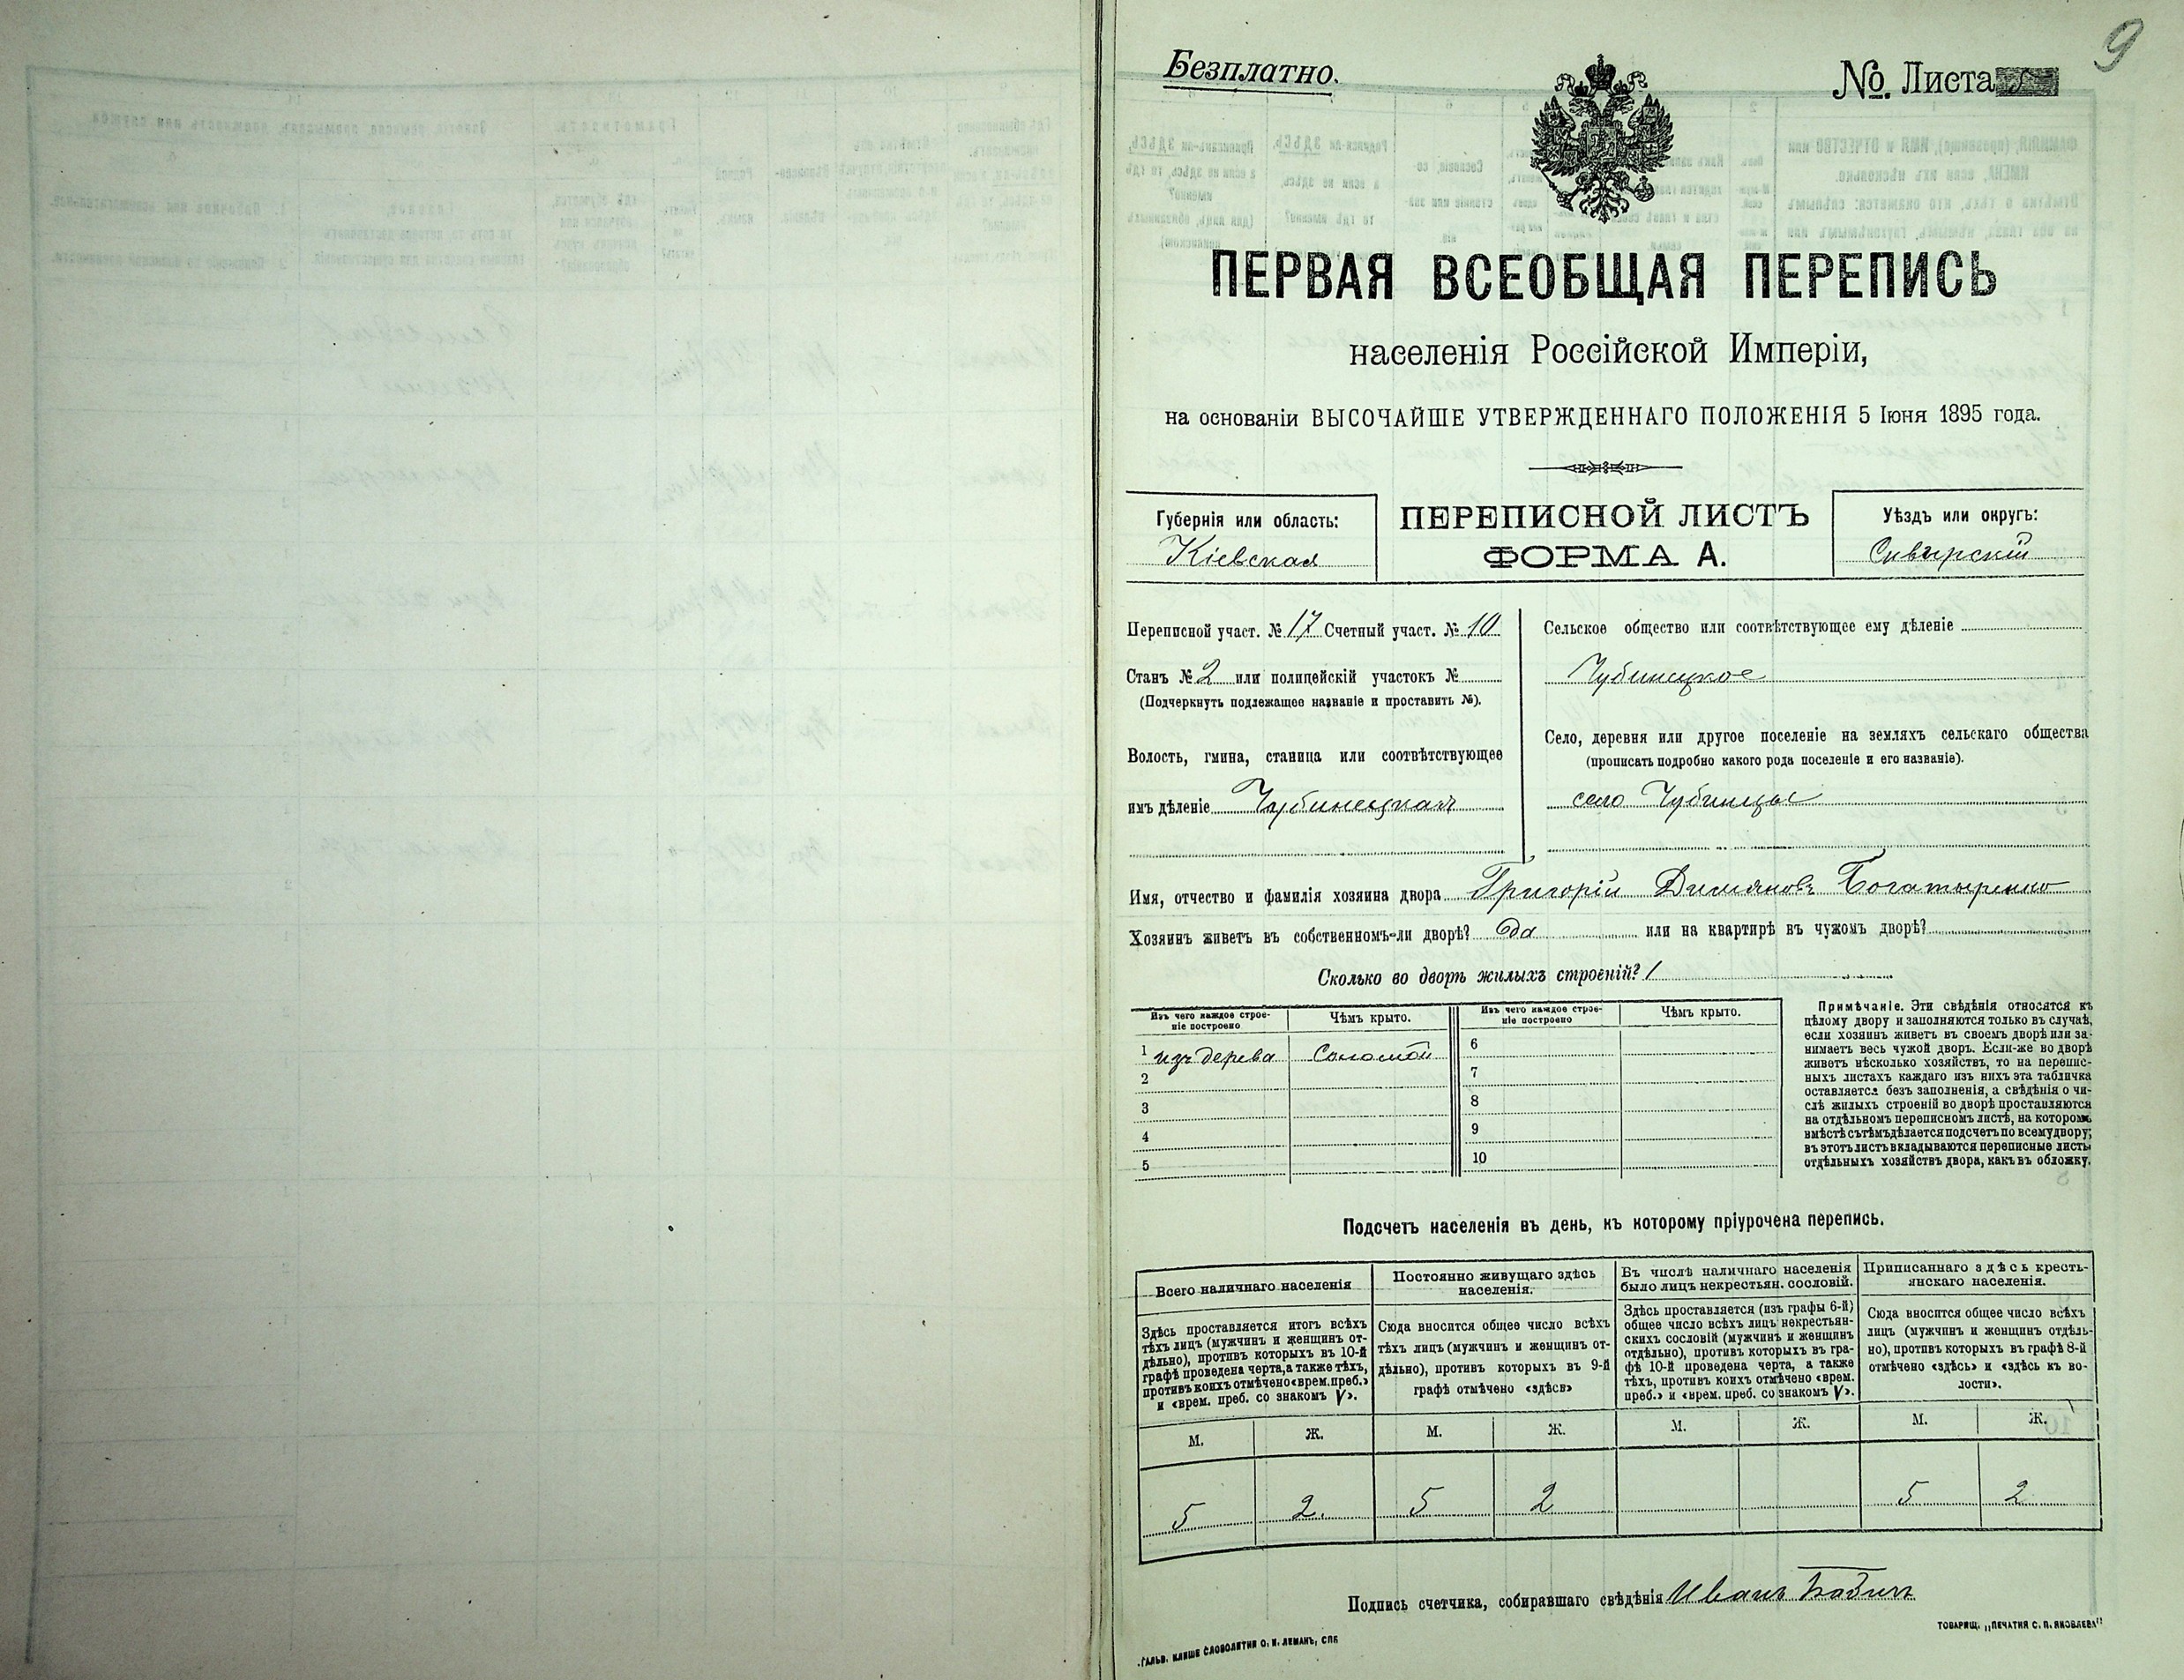 9
Безплатно.
№ Листа
ПЕРВАЯ ВСЕОБЩАЯ ПЕРЕПИСЬ
населенія Россійской Имперіи,
на основаніи ВЫСОЧАЙШЕ УТВЕРЖДЕННАГО ПОЛОЖЕНІЯ 5 Іюня 1895 года.
Губернія или область:
Кіевская
ПЕРЕПИСНОЙ ЛИСТЪ
ФОРМА А.
Уѣздъ или округъ:
Сквирскій
Переписной участ. № 17 Счетный участ. № 10
Станъ № 2 или полицейскій участокъ №
(Подчеркнуть подлежащее названіе и проставить №).
Волость, гмина, станица или соотвѣтствующее
имъ дѣленіе Чубинецкая
Сельское общество или соотвѣтствующее ему дѣленіе
Чубинецкое
Село, деревня или другое поселеніе на земляхъ сельскаго общества
(прописать подробно какого рода поселеніе и его названіе).
село Чубинцы
Имя, отчество и фамилія хозяина двора Григорій Демяновъ Богатыренко
Хозяинъ живетъ въ собственномъ-ли дворѣ? да или на квартирѣ въ чужомъ дворѣ?
Сколько во дворѣ жилыхъ строеній? 1
Изъ чего каждое строе-
ніе построено
Чѣмъ крыто.
1 изъ дерева Соломой
2
3
4
5
Изъ чего каждое строе-
ніе построено
Чѣмъ крыто.
6
7
8
9
10
Примѣчаніе. Эти свѣдѣнія относятся къ
цѣлому двору и заполняются только въ случаѣ,
если хозяинъ живетъ въ своемъ дворѣ или за-
нимаетъ весь чужой дворъ. Если-же во дворѣ
живетъ нѣсколько хозяйствъ, то на перепис-
ныхъ листахъ каждаго изъ нихъ эта табличка
оставляется безъ заполненія, а свѣдѣнія о чи-
слѣ жилыхъ строеній во дворѣ проставляются
на отдѣльномъ переписномъ листѣ, на которомъ
вмѣстѣ съ тѣмъ дѣлается подсчетъ по всему двору;
въ этотъ листъ вкладываются переписные листы
отдѣльныхъ хозяйствъ двора, какъ въ обложку.
Подсчетъ населенія въ день, къ которому пріурочена перепись.
Всего наличнаго населенія
Здѣсь проставляется итогъ всѣхъ
тѣхъ лицъ (мужчинъ и женщинъ от-
дѣльно), противъ которыхъ въ 10-й
графѣ проведена черта, а также тѣхъ,
противъ коихъ отмѣчено «врем. преб.»
и «врем. преб. со знакомъ V».
М. Ж.
5 2.
Постоянно живущаго здѣсь
населенія.
Сюда вносится общее число всѣхъ
тѣхъ лицъ (мужчинъ и женщинъ от-
дѣльно), противъ которыхъ въ 9-й
графѣ отмѣчено «здѣсь»
М. Ж.
5 2
Въ числѣ наличнаго населенія
было лицъ некрестьян. сословій.
Здѣсь проставляется (изъ графы 6-й)
общее число всѣхъ лицъ некрестьян-
скихъ сословій (мужчинъ и женщинъ
отдѣльно), противъ которыхъ въ гра-
фѣ 10-й проведена черта, а также
тѣхъ, противъ коихъ отмѣчено «врем.
преб.» и «врем. преб. со знакомъ V».
М. Ж.
Приписаннаго здѣсь кресть-
янскаго населенія.
Сюда вносится общее число всѣхъ
лицъ (мужчинъ и женщинъ отдѣль-
но), противъ которыхъ въ графѣ 8-й
отмѣчено «здѣсь» и «здѣсь къ во-
лости».
М. Ж.
5 2
Подпись счетчика, собиравшаго свѣдѣнія Иванъ Бабичъ
ГАЛЬВ. КЛИШЕ СЛОВОЛИТНИ О. И. ЛЕМАНЪ, СПБ
ТОВАРИЩ. „ПЕЧАТНЯ С. П. ЯКОВЛЕВА"